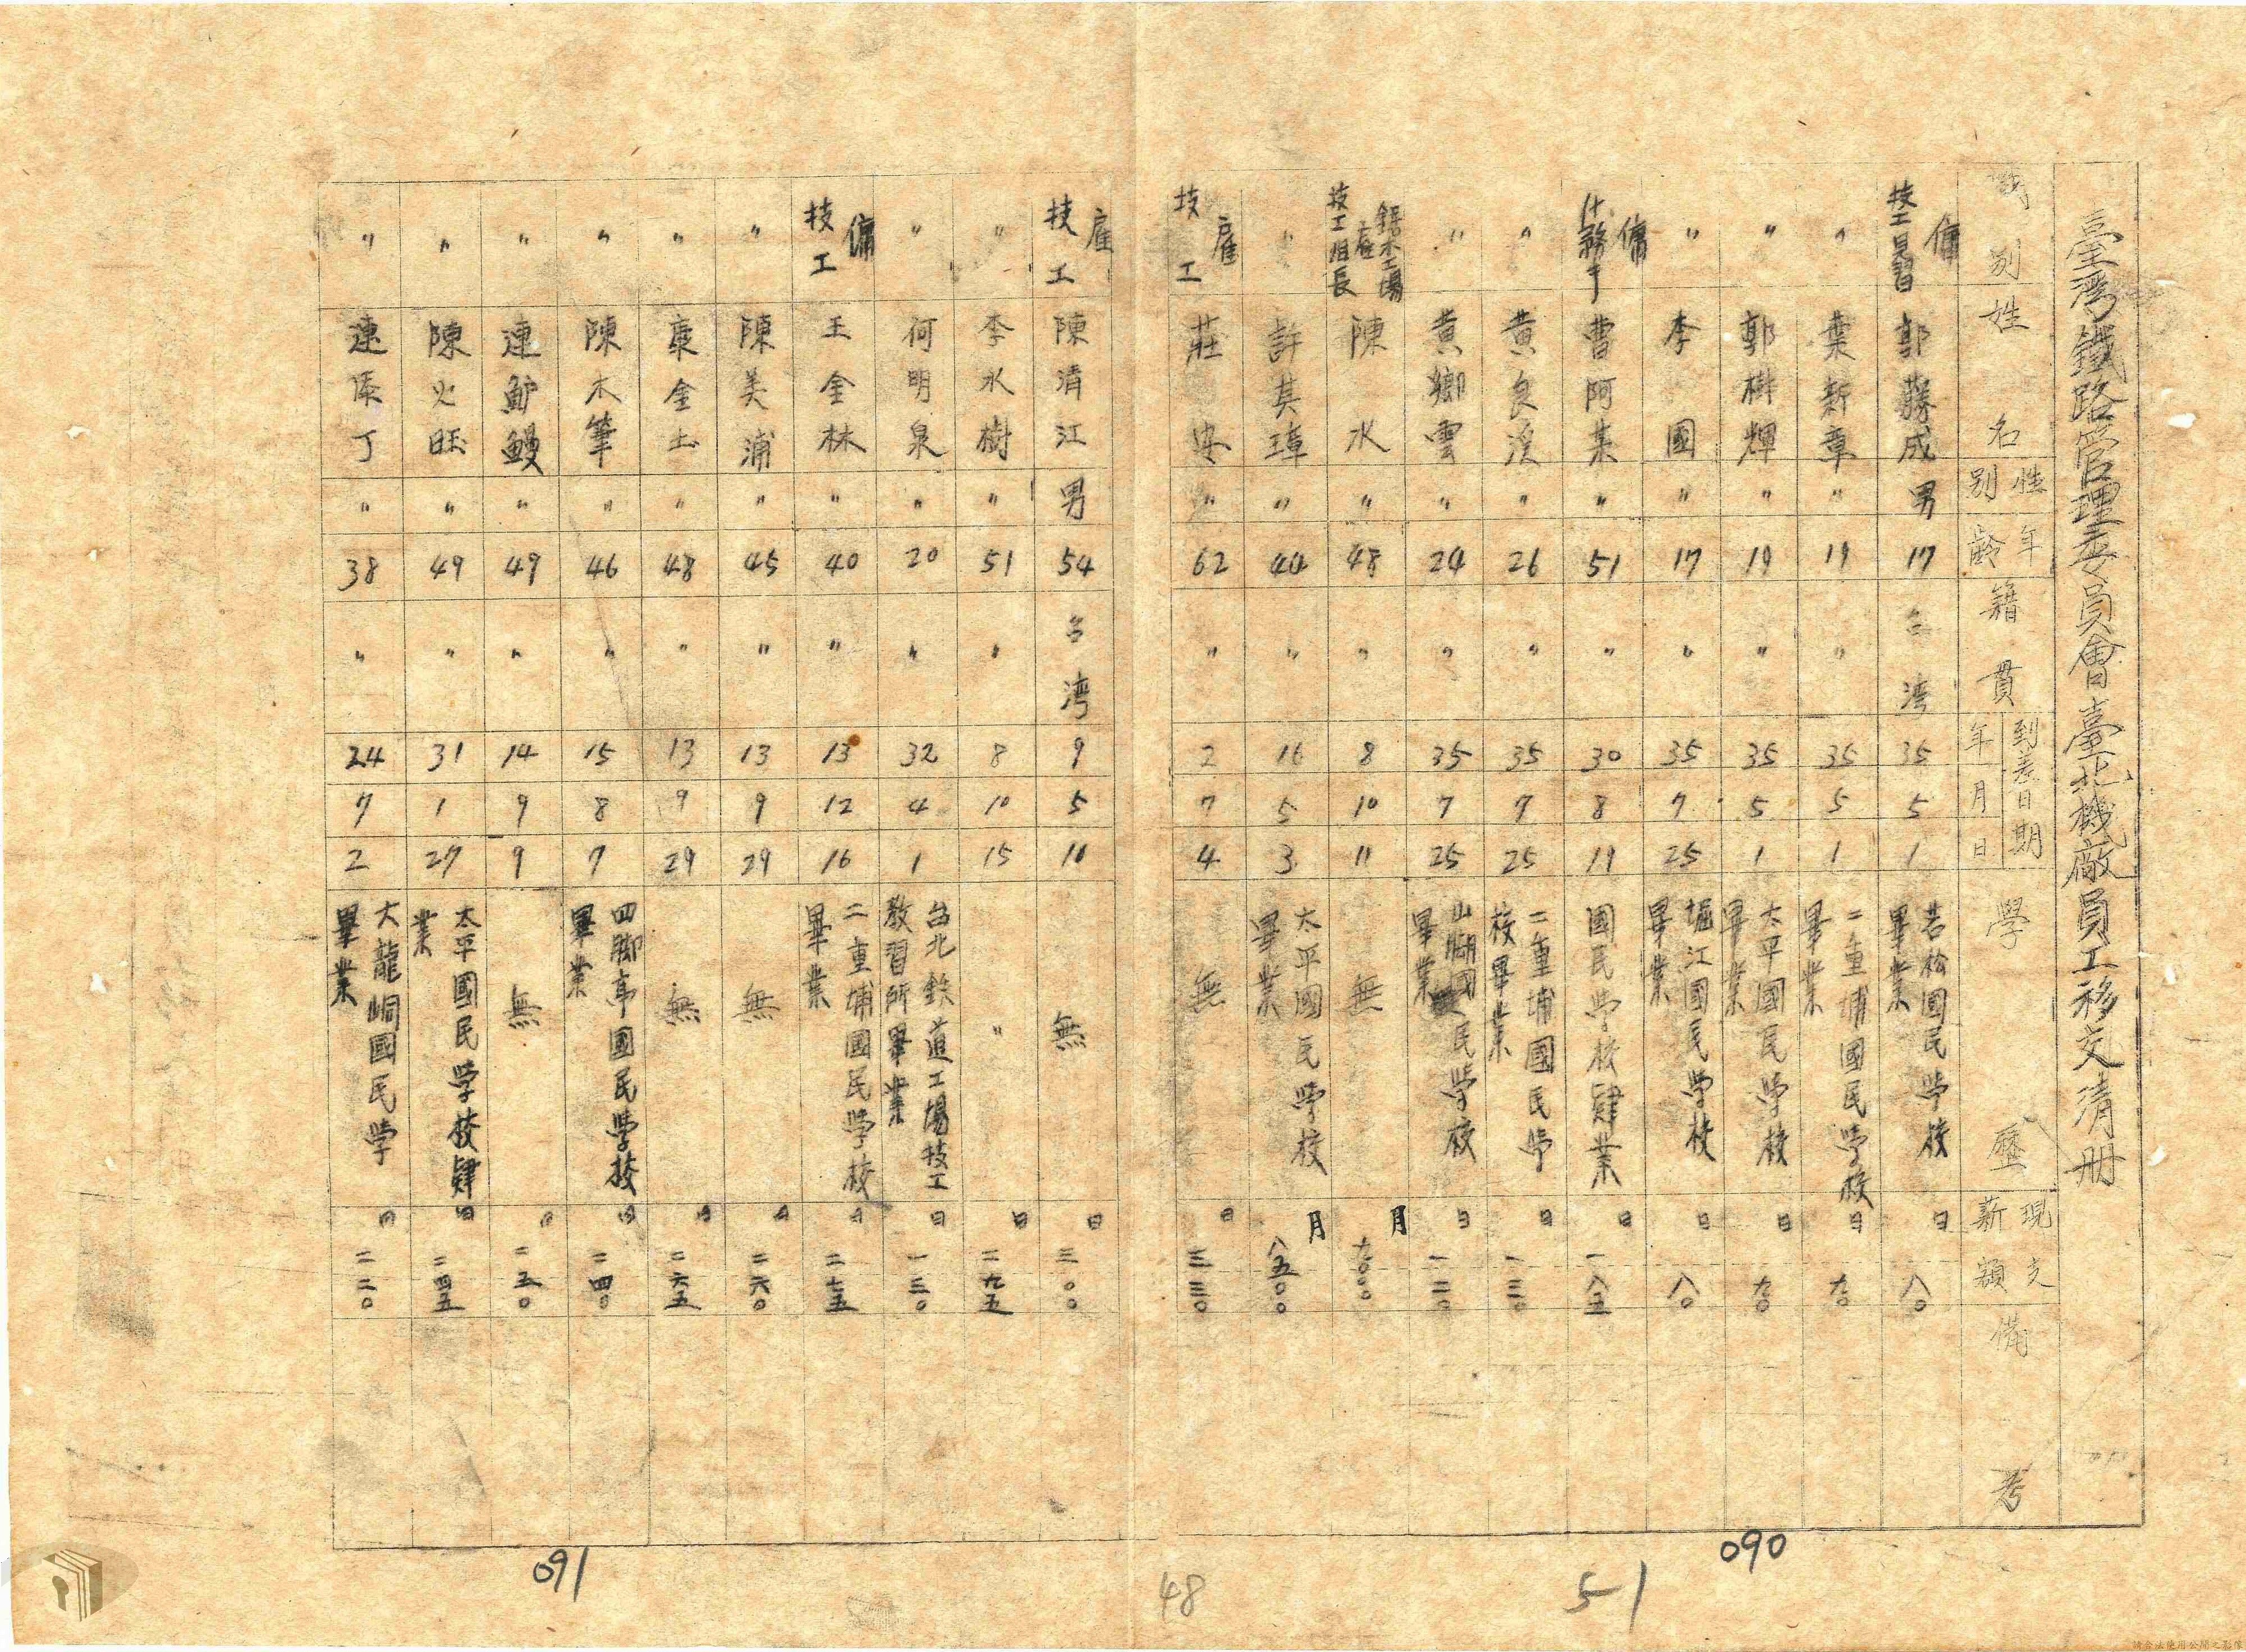 臺灣鐵路管理委員會臺北機廠員工移交清冊
職別 姓名 性別 年齡 籍貫 到差日期 年 月 日 學歷 現支薪額 備考
傭 技工見習 郭蘇成 男 17 台湾 35 5 1 若松國民学校畢業 日 八〇
〃 葉新章 〃 19 〃 35 5 1 二重埔國民学校畢業 日 九〇
〃 郭樹輝 〃 19 〃 35 5 1 太平國民学校畢業 日 九〇
〃 李國 〃 17 〃 35 7 25 堀江國民学校畢業 日 八〇
傭 什務手 曹阿某 〃 51 〃 30 8 19 國民学校肄業 日 一八五
〃 黄良溪 〃 26 〃 35 7 25 二重埔國民学校畢業 日 一三〇
〃 黄鄉雲 〃 24 〃 35 7 25 山腳國民学校畢業 日 一二〇
鋸木工場 雇 技工組長 陳水 〃 48 〃 8 10 11 無 月 九〇〇〇
〃 許其璋 〃 44 〃 16 5 3 太平國民学校畢業 月 八五〇〇
雇 技工 莊安 〃 62 〃 2 7 4 無 日 三三〇
雇 技工 陳清江 男 54 台湾 9 5 10 無 日 三〇〇
〃 李水樹 〃 51 〃 8 10 15 〃 日 二九五
〃 何明泉 〃 20 〃 32 4 1 台北鉄道工場技工教習所畢業 日 一三〇
傭 技工 王金林 〃 40 〃 13 12 16 二重埔國民学校畢業 日 二七五
〃 陳美浦 〃 45 〃 13 9 29 無 日 二六〇
〃 金土 〃 48 〃 13 9 29 無 日 二六五
〃 陳木筆 〃 46 〃 15 8 7 四腳亭國民学校畢業 日 二四〇
〃 連鱸鰻 〃 49 〃 14 9 9 無 日 二五〇
〃 陳火旺 〃 49 〃 31 1 27 太平國民学校肄業 日 二四五
〃 連添丁 〃 38 〃 24 7 2 大龍峒國民学畢業 日 二二〇
090
51
48
091
請合法使用公開之影像